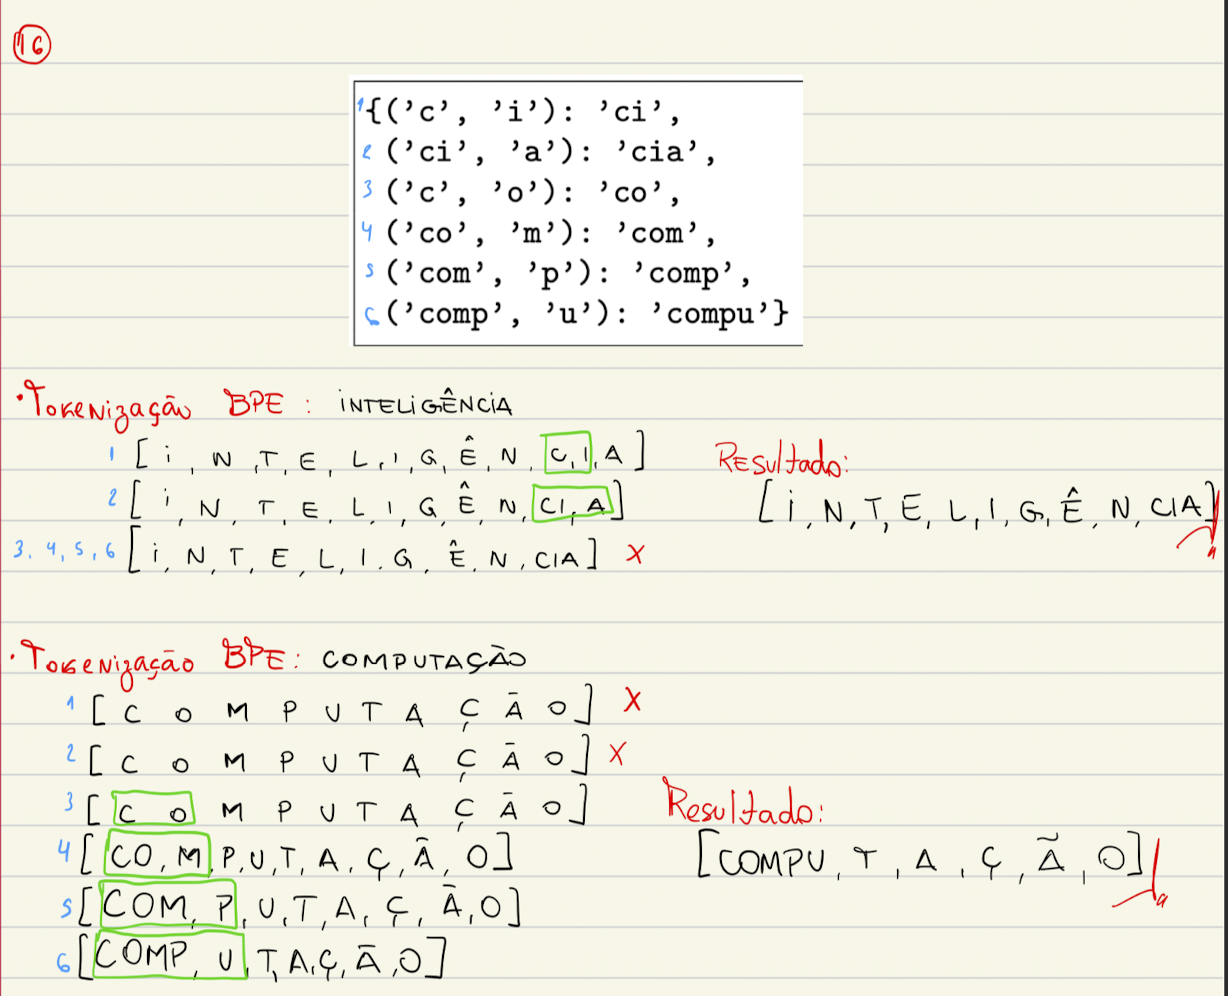 16
1 {('c', 'i'): 'ci',
2 ('ci', 'a'): 'cia',
3 ('c', 'o'): 'co',
4 ('co', 'm'): 'com',
5 ('com', 'p'): 'comp',
6 ('comp', 'u'): 'compu'}
• Tokenização BPE : INTELIGÊNCIA
1 [ i , N , T , E , L , I , G , Ê , N , C , I , A ]
Resultado:
2 [ i , N , T , E , L , I , G , Ê , N , CI , A ]
[ i , N , T , E , L , I , G , Ê , N , CIA ]
3, 4, 5, 6 [ i , N , T , E , L , I , G , Ê , N , CIA ] X
• Tokenização BPE : COMPUTAÇÃO
1 [ C O M P U T A Ç Ã O ] X
2 [ C O M P U T A Ç Ã O ] X
3 [ C O M P U T A Ç Ã O ]
Resultado:
4 [ CO , M , P , U , T , A , Ç , Ã , O ]
[ COMPU , T , A , Ç , Ã , O ]
5 [ COM , P , U , T , A , Ç , Ã , O ]
6 [ COMP , U , T , A , Ç , Ã , O ]